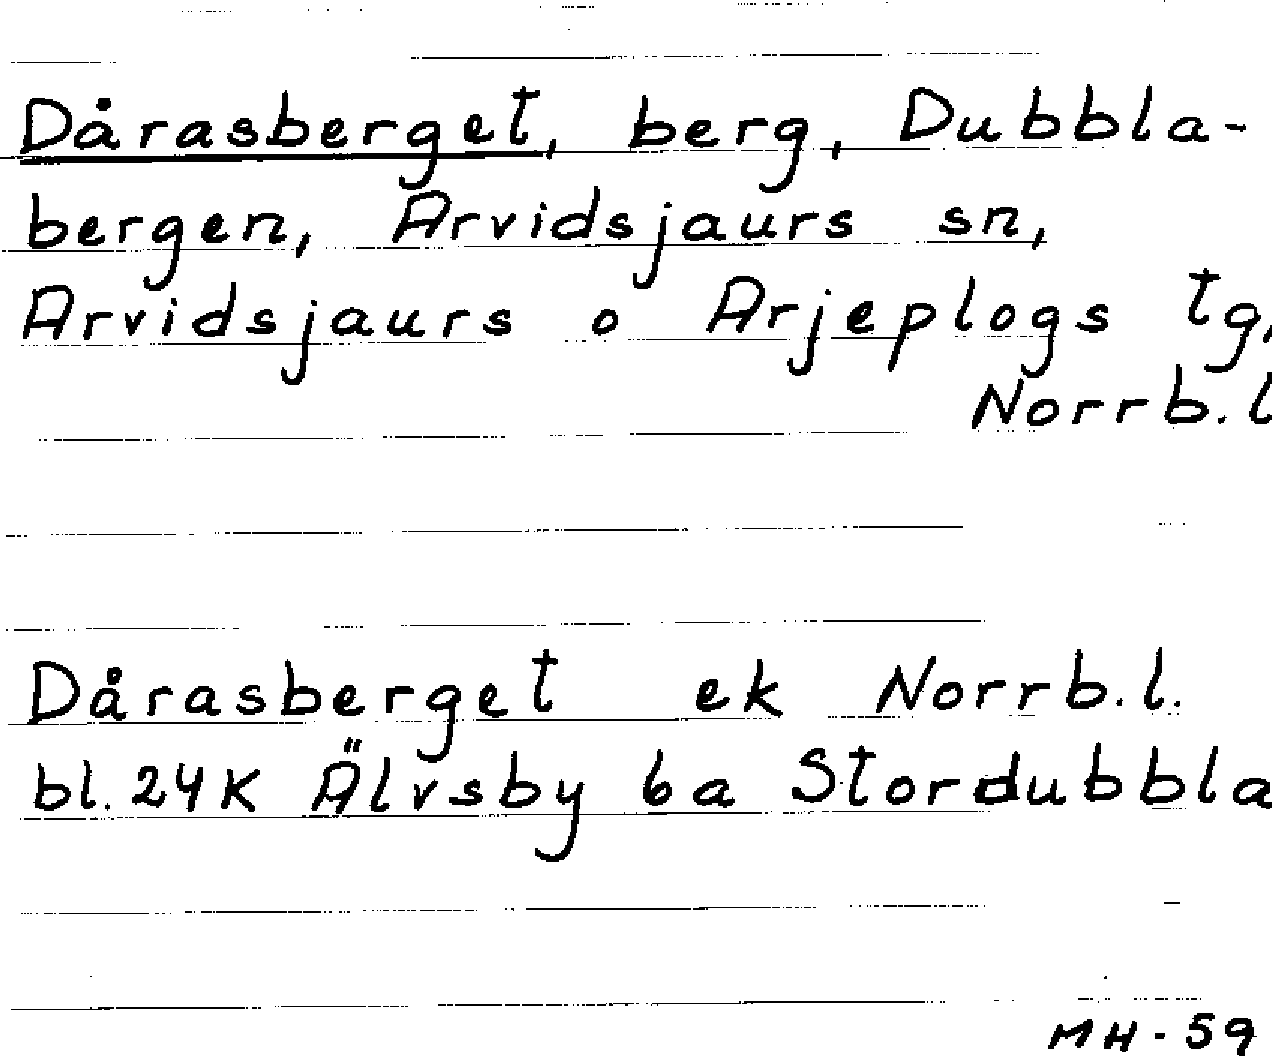 Dårasberget, berg, Dubbla-
bergen, Arvidsjaurs sn,
Arvidsjaurs o Arjeplogs tg,
Norrb. l
Dårasberget ek Norrb. l.
bl. 24K Älvsby 6a Stordubbla
MH-59